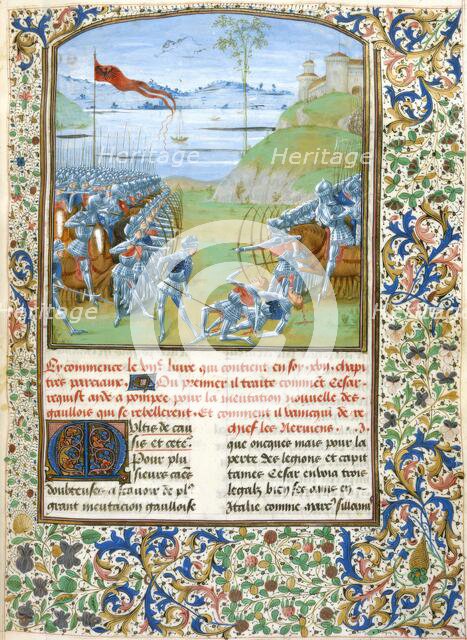 Heritage Heritage
Heritage Heritage
Heritage Heritage
Cy commence le vij.e liure qui contient en soy .xvij. chapi
tres parciaux. Du premier il traite comment Cesar
requist aide a pompee pour la mutation nouuelle des
gaullois qui se rebellerent. Et comment il vainqui de re
chief les Neruiens
Multis de cau
sis et cete.
Pour plu
sieurs causes
doubteuses ascauoir de pl9
grant mutacion gaulloise
que oncques mais pour la
perte des legions et capit
taines Cesar enuoia trois
legatz bien ses amis en
Ytalie comme marc sillami
Heritage Heritage